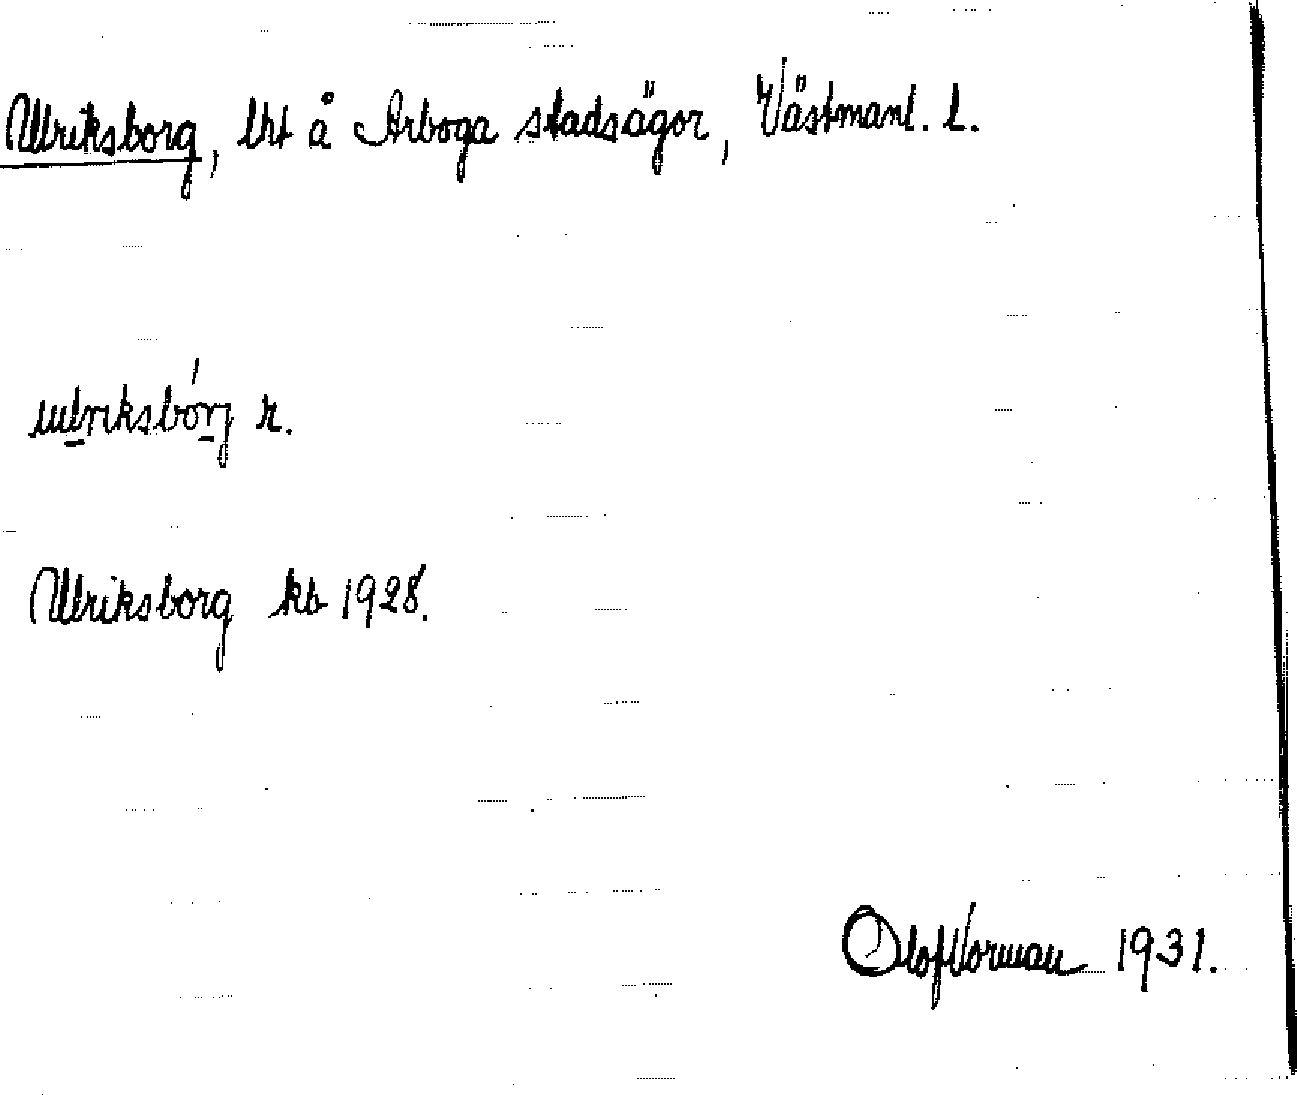 Ulriksborg, lht å Arboga stadsägor, Västmanl. l.
ulriksbórj r.
Ulriksborg kb 1928.
Olof Vorman 1931.